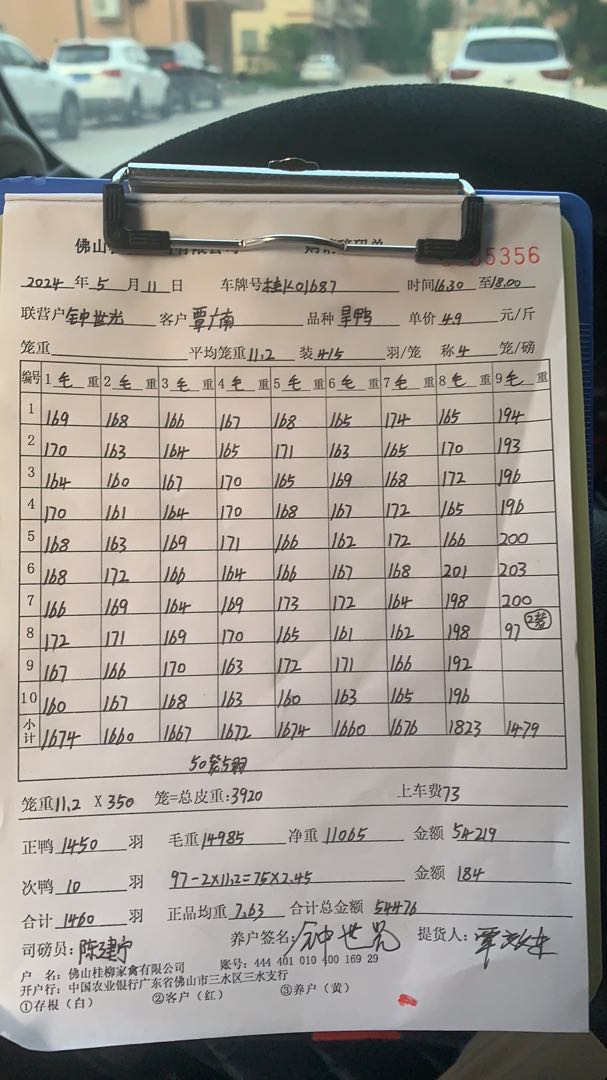 佛山 有限公司 购销磅码单 5356
2024 年 5 月 11 日 车牌号桂K01687 时间16.30 至18.00
联营户 钟世光 客户 覃广南 品种 旱鸭 单价 4.9 元/斤
笼重 平均笼重 11.2 装 4/5 羽/笼 称 4 笼/磅
编号 1 毛 重 2 毛 重 3 毛 重 4 毛 重 5 毛 重 6 毛 重 7 毛 重 8 毛 重 9 毛 重
1 169 168 166 167 168 165 174 165 194
2 170 163 164 165 171 163 165 170 193
3 164 160 167 170 165 169 168 172 196
4 170 161 164 170 168 167 172 165 196
5 168 163 169 171 166 162 172 166 200
6 168 172 166 164 166 167 168 201 203
7 166 169 164 169 173 172 164 198 200
8 172 171 169 170 165 161 162 198 97 2笼
9 167 166 170 163 172 171 166 192
10 160 167 168 163 160 163 165 196
小计 1674 1660 1667 1672 1674 1660 1676 1823 1479
50笼5羽
笼重 11.2 X 350 笼=总皮重:3920 上车费 73
正鸭 1450 羽 毛重 14985 净重 11065 金额 54219
次鸭 10 羽 97-2X11.2=75X2.45 金额 184
合计 1460 羽 正品均重 7.63 合计总金额 54476
司磅员: 陈建宁 养户签名: 钟世光 提货人:
户 名: 佛山桂柳家禽有限公司 账号: 444 401 010 400 169 29
开户行: 中国农业银行广东省佛山市三水区三水支行
①存根（白） ②客户（红） ③养户（黄）